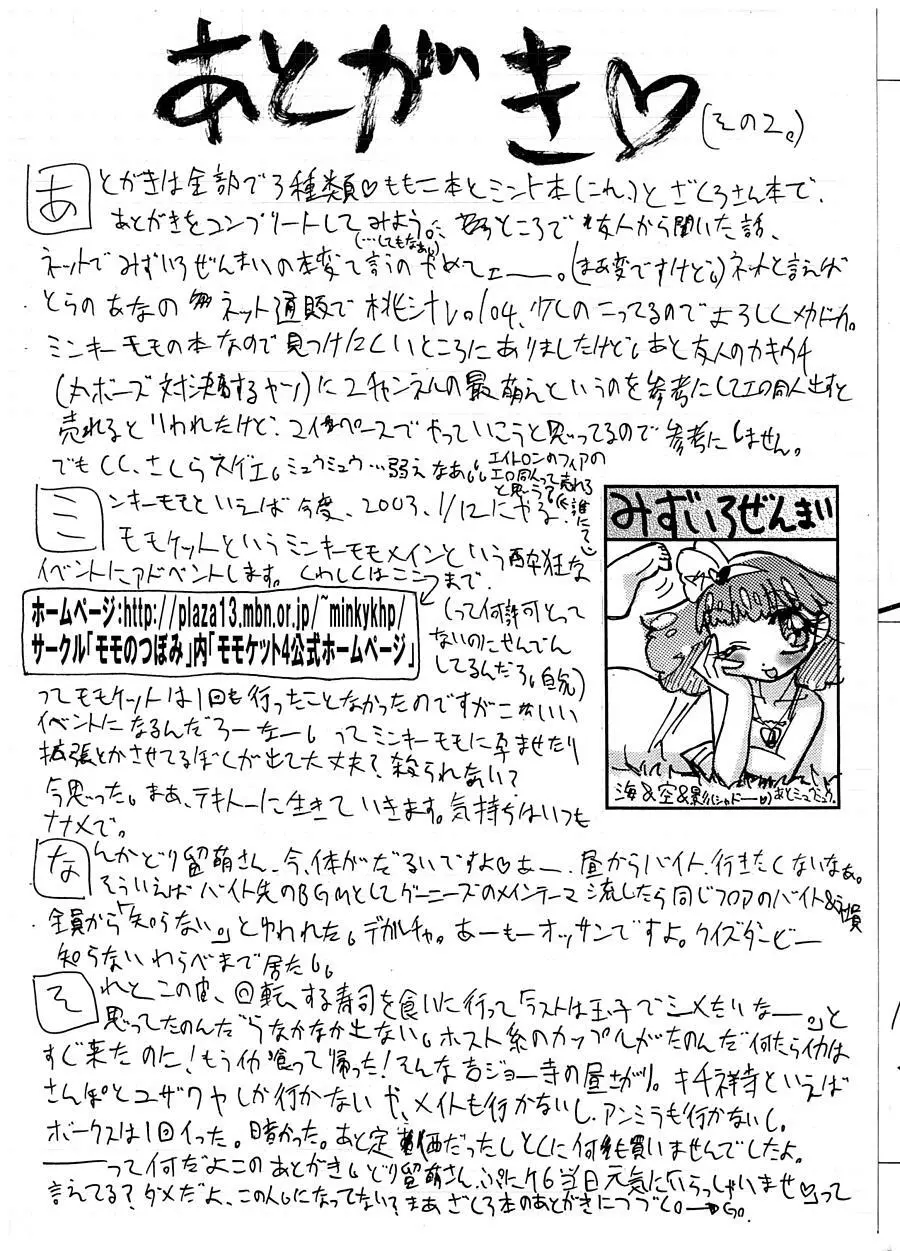 あとがき♡
(その2。)
あとがきは全部で3種類♡ももこ本とミント本(これ)とざくろさん本で、
あとがきをコンプリートしてみよう。ところで友人から聞いた話、
(…してもなあ)
ネットでみずいろぜんまいの本変て言うのやめてェ——。(まあ変ですけど。)ネットと言えば
とらのあなのネット通販で桃汁Vol04、少しのこってるのでよろしくメカドック。
ミンキーモモの本なので見つけにくいところにありましたけど。あと友人のカキウチ
(丸ボーズ対決するヤツ)に2チャンネルの最萌えというのを参考にしてエロ同人出すと
売れるといわれたけど、マイペースでやっていこうと思ってるので参考にしません。
でもCCさくらスゲエ。ミュウミュウ…弱えなあ。
エイトロンのフィアの
エロ同人って売れる
と思う?
誰にて
ミンキーモモといえば今度、2003.1/12にやる
モモケットというミンキーモモメインという酔狂な
イベントにアドベントします。くわしくはここまで。
ホームページ:http://plaza13.mbn.or.jp/~minkykhp/
サークル「モモのつぼみ」内「モモケット4公式ホームページ」
(って何許可とって
ないのにせんでん
してるんだろ。自分)
みずいろぜんまい
海&空&影(シャドー)
ってモモケットは1回も行ったことなかったのですがこあいい
イベントになるんだろーなー。ってミンキーモモに孕ませたり
拡張とかさせてるぼくが出て大丈夫?殺られない?て
今思った。まあ、テキトーに生きていきます。気持ちはいつも
ナナメで。
なんかどり留萌さん、今、体がだるいですよ♡あー、昼からバイト行きたくないなぁ。
そういえばバイト先のBGMとしてグーニーズのメインテーマ流したら同じフロアのバイト&
全員から「知らない。」とゆわれた。デカルチャ。あーもーオッサンですよ。クイズダービー
知らないわらべまで居たし。
それとこの间、回転する寿司を食いに行って「ラストは玉子でシメたいなー。」と
思ってたのんだらなかなか出ない。ホスト系のカップルがたのんだ何たらイカは
すぐ来たのに!もうイカ喰って帰った!そんな吉ジョー寺の昼さがり。キチ祥寺といえば
さんぽとユザワヤしか行かないや、メイトも行かないし、アンミラも行かないし。
ボークスは1回イった。暗かった。あと定価だったしとくに何も買いませんでしたよ。
——って何だよこのあとがき。どり留萌さん、ぷにケ6当日元気にいらっしゃいませ♡って
言えてる?ダメだよ、この人。になってない?まあざくろ本のあとがきにつづく。→Go.